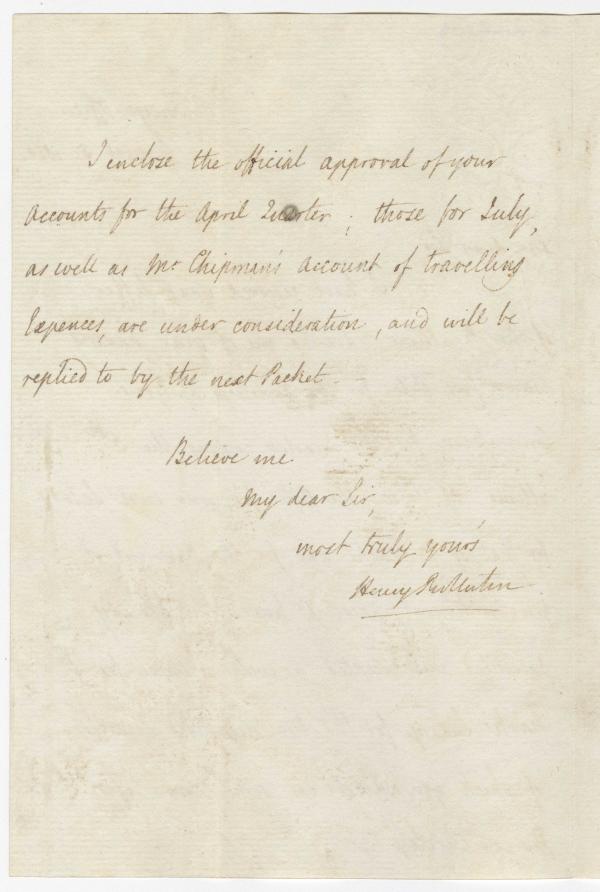 I enclose the official approval of your
Accounts for the April Quarter; those for July,
as well as Mr Chipman's account of travelling
Expences, are under consideration, and will be
replied to by the next Packet —
Believe me
My dear Sir,
most truly yours
Henry